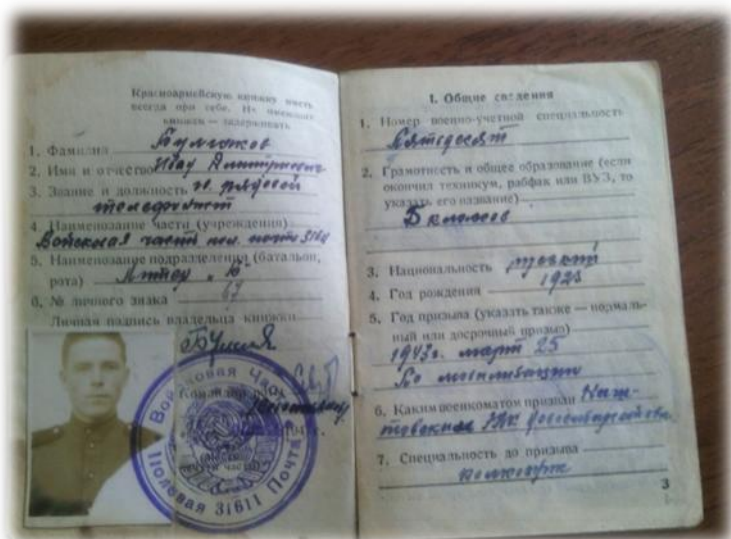 Красноармейскую книжку иметь
всегда при себе. Не имеющих
книжки — задерживать
1. Фамилия
2. Имя и отчество Иван Дмитриевич
3. Звание и должность рядовой
телефонист
4. Наименование части (учреждения)
Войсковая часть пол. почта
5. Наименование подразделения (батальон,
рота) Литер „Б“
6. № личного знака
Личная подпись владельца книжки
Командир
Войсковая Часть
Полевая 31611 Почта
1. Общие сведения
1. Номер военно-учетной специальности
Пятьдесят
2. Грамотность и общее образование (если
окончил техникум, рабфак или ВУЗ, то
указать его название)
5 классов
3. Национальность русский
4. Год рождения 1923
5. Год призыва (указать также — нормаль-
ный или досрочный призыв)
1943г. март 25
По мобилизации
6. Каким военкоматом призван
РВК
7. Специальность до призыва
3